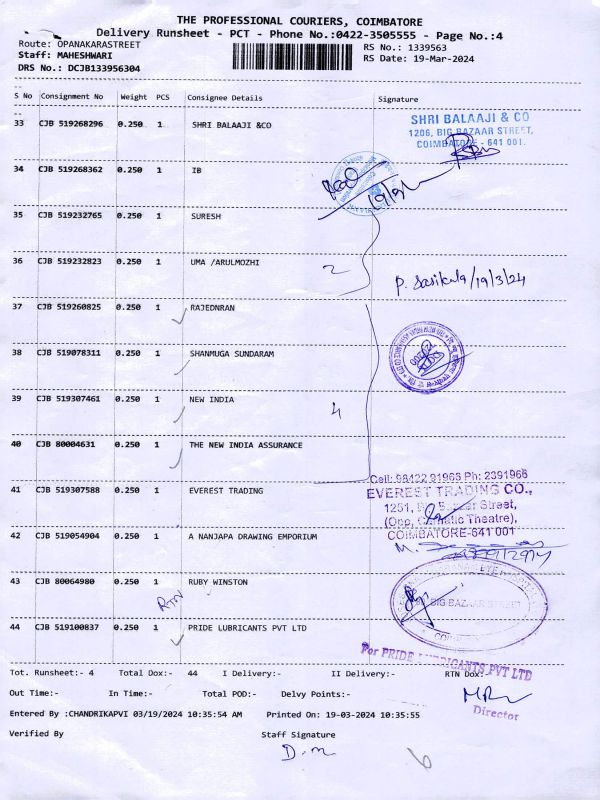 THE PROFESSIONAL COURIERS, COIMBATORE
Delivery Runsheet - PCT - Phone No.:0422-3505555 - Page No.:4
Route: OPANAKARASTREET RS No.: 1339563
Staff: MAHESHWARI RS Date: 19-Mar-2024
DRS No.: DCJB133956304
S No Consignment No Weight PCS Consignee Details Signature
33 CJB 519268296 0.250 1 SHRI BALAAJI &CO
SHRI BALAAJI & CO
1206, BIG BAZAAR STREET,
COIMBATORE - 641 001.
34 CJB 519268362 0.250 1 IB
35 CJB 519232765 0.250 1 SURESH
36 CJB 519232823 0.250 1 UMA /ARULMOZHI 2 P. Sasikala/19/3/24
37 CJB 519260825 0.250 1 RAJEDNRAN
38 CJB 519078311 0.250 1 SHANMUGA SUNDARAM
39 CJB 519307461 0.250 1 NEW INDIA 4
40 CJB 80004631 0.250 1 THE NEW INDIA ASSURANCE
41 CJB 519307588 0.250 1 EVEREST TRADING
Cell: 98422 91966 Ph: 2391966
EVEREST TRADING CO.,
1251, Street,
(Opp, Theatre),
COIMBATORE-641 001
42 CJB 519054904 0.250 1 A NANJAPA DRAWING EMPORIUM
43 CJB 80064980 0.250 1 RUBY WINSTON
RTN
BIG BAZAAR STREET
44 CJB 519100837 0.250 1 PRIDE LUBRICANTS PVT LTD
For PRIDE LUBRICANTS PVT LTD
Tot. Runsheet:- 4 Total Dox:- 44 I Delivery:- II Delivery:- RTN Dox:-
Out Time:- In Time:- Total POD:- Delvy Points:-
Director
Entered By :CHANDRIKAPVI 03/19/2024 10:35:54 AM Printed On: 19-03-2024 10:35:55
Verified By Staff Signature
D. m 6